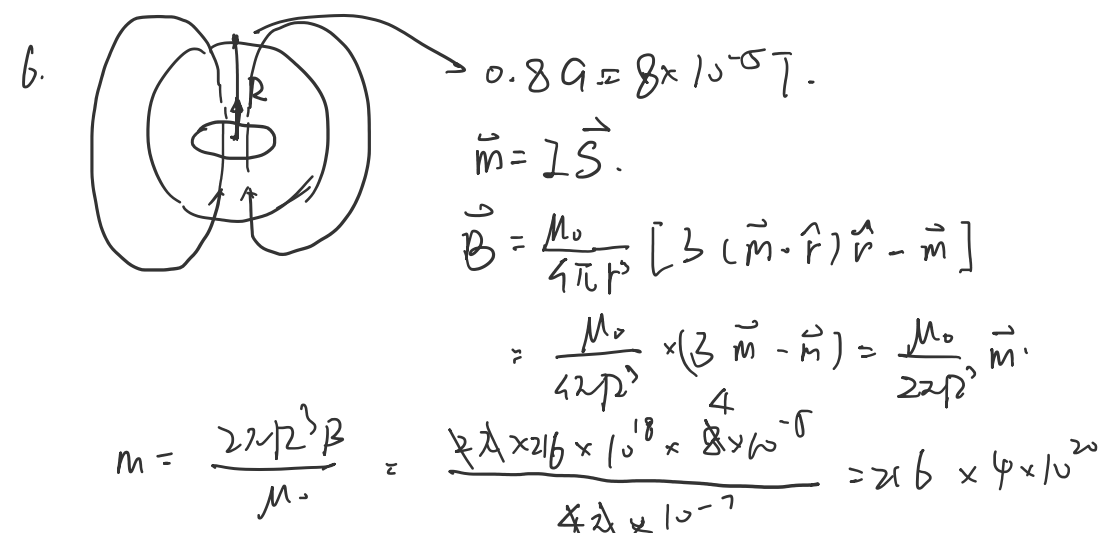 6.
R
0.8 G = 8×10⁻⁵ T.
m⃗ = I S⃗.
B⃗ = μ₀/4πr³ [3(m⃗·r̂)r̂ - m⃗]
= μ₀/4πR³ ×(3m⃗ - m⃗) = μ₀/2πR³ m⃗.
m = 2πR³B/μ₀ = 2π×216×10¹⁸×8×10⁻⁵/4π×10⁻⁷ 4 = 216×4×10²⁰